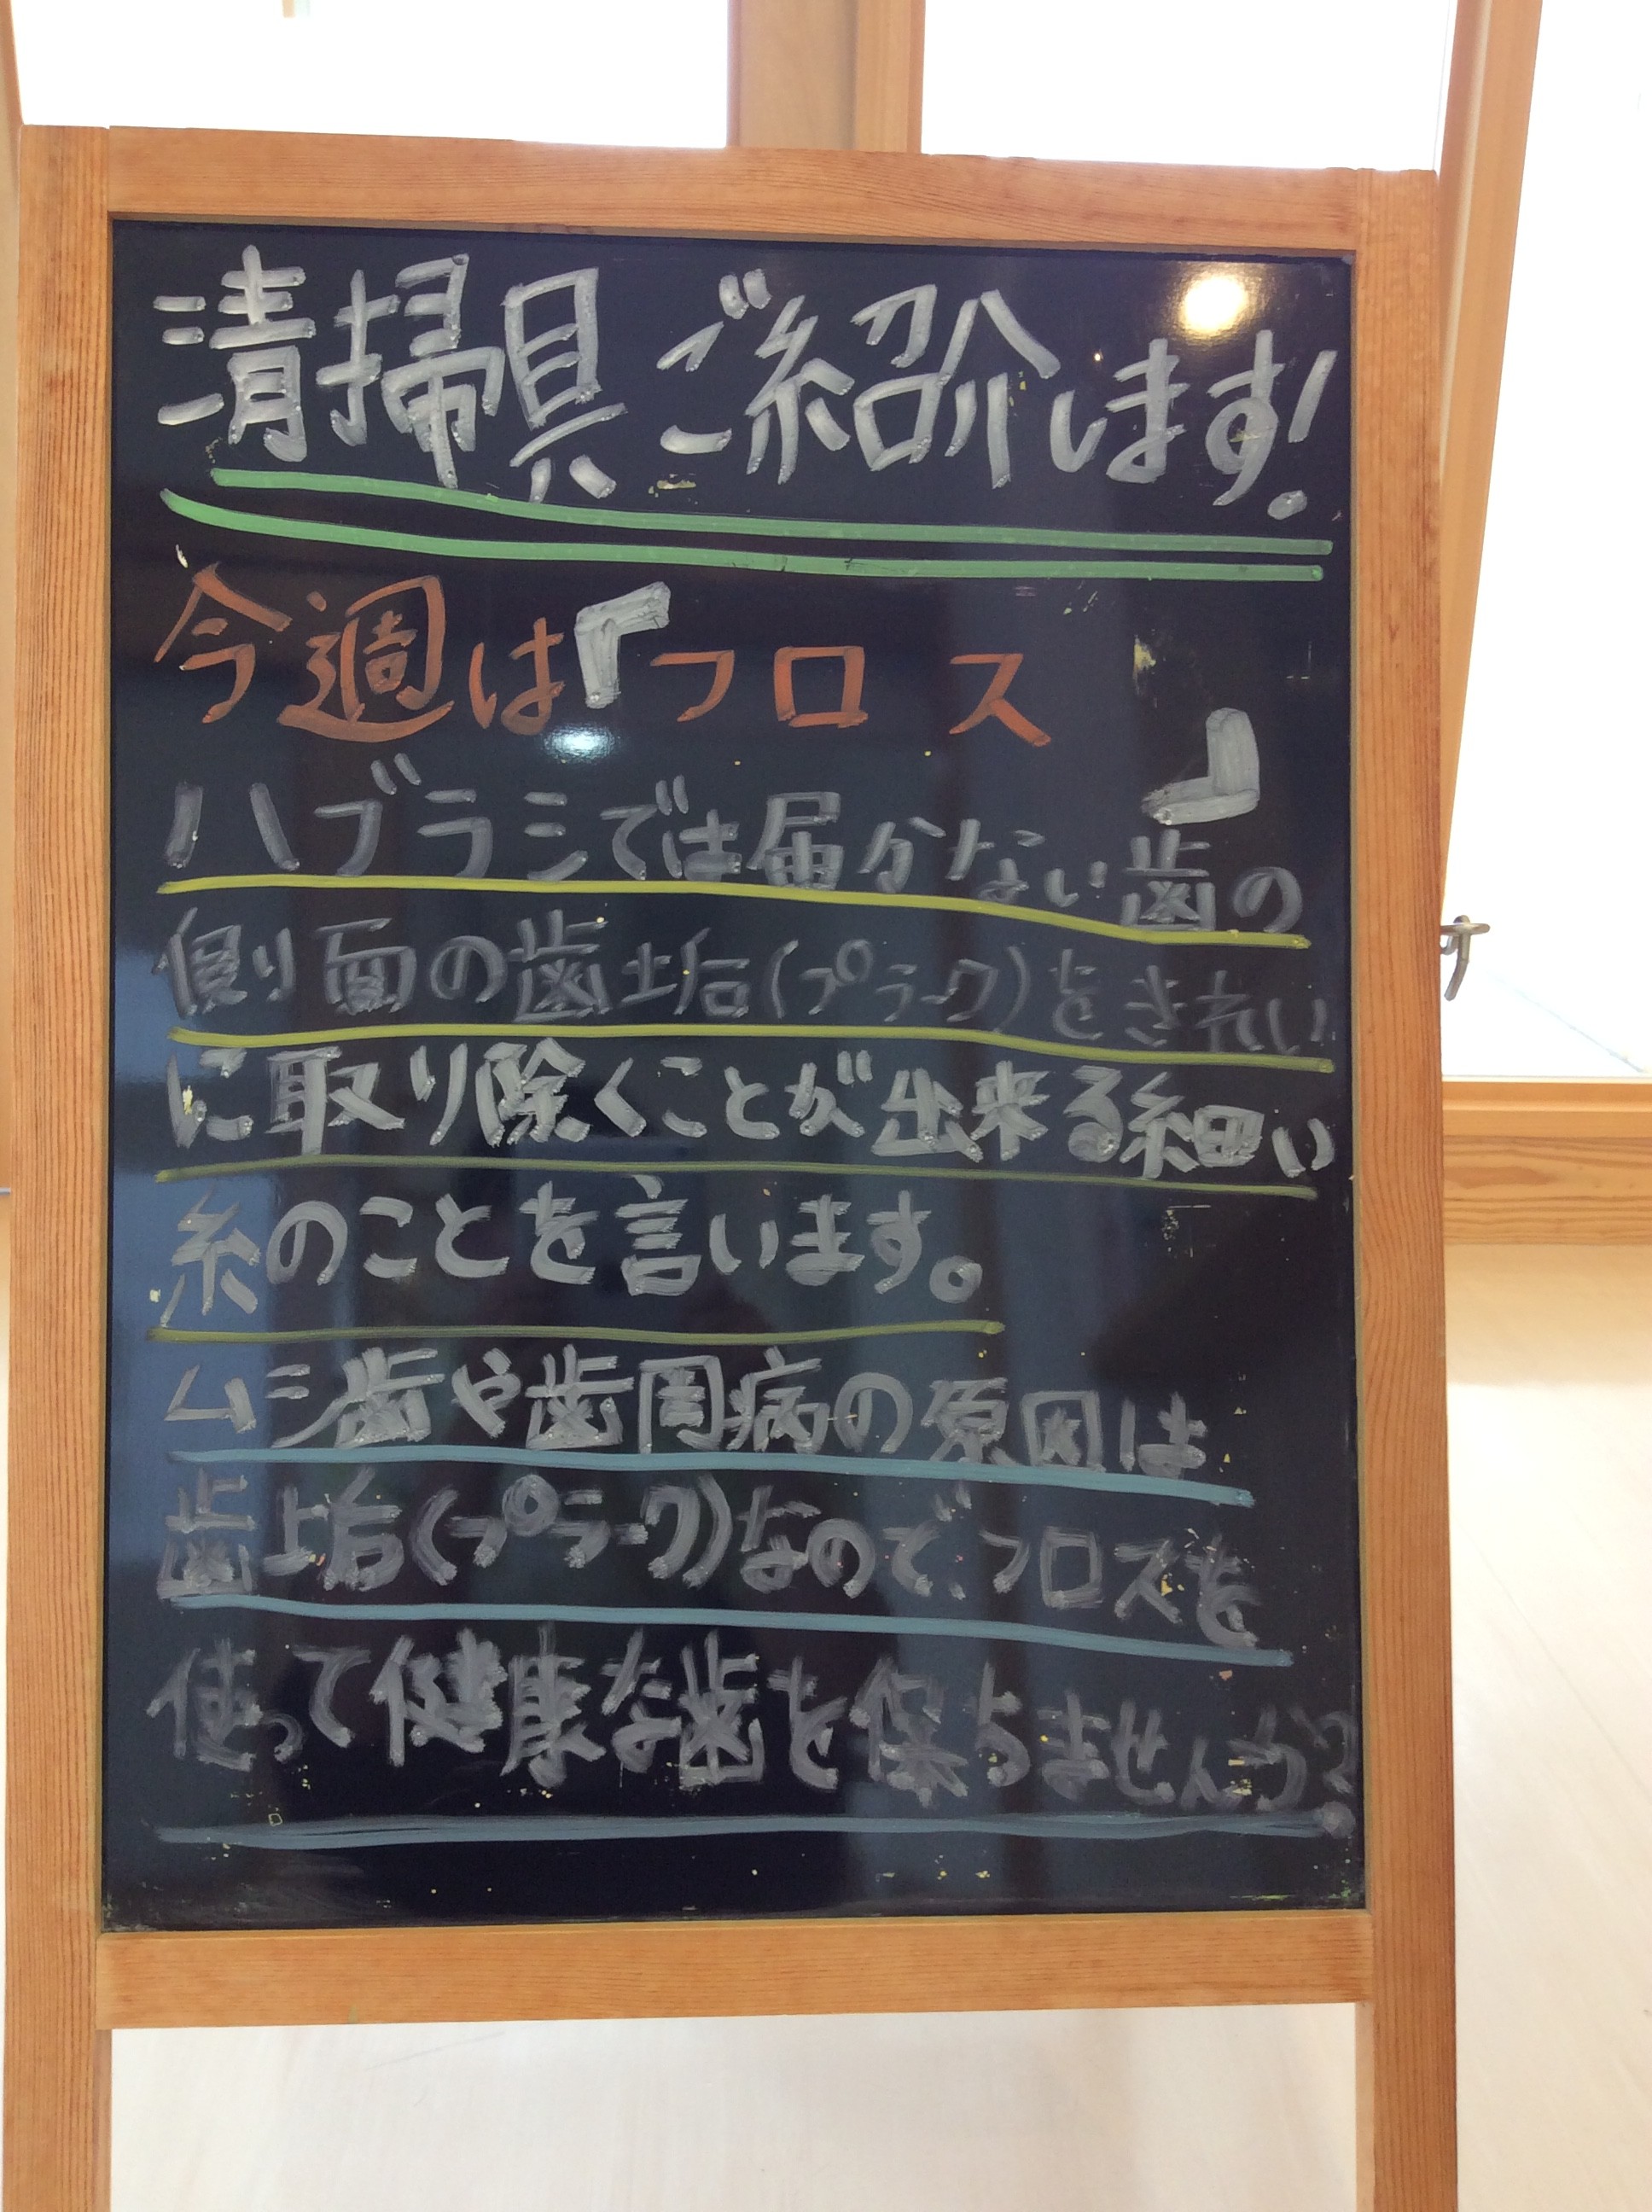 清掃具ご紹介します!
今週は「フロス」
ハブラシでは届かない歯の
側面の歯垢(プラーク)をきれい
に取り除くことが出来る細い
糸のことを言います。
ムシ歯や歯周病の原因は
歯垢(プラーク)なので、フロスを
使って健康な歯を保ちませんか?